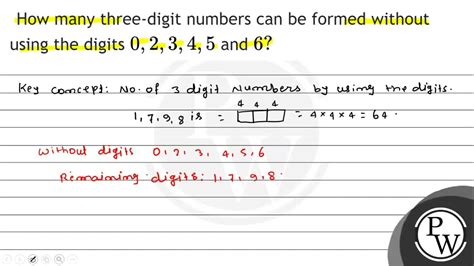 How many three-digit numbers can be formed without
using the digits 0, 2, 3, 4, 5 and 6?
Key concept: No. of 3 digit Numbers by using the digits.
4 4 4
1, 7, 9, 8 is = = 4 × 4 × 4 = 64.
without digits 0, 2, 3, 4, 5, 6
Remaining digits: 1, 7, 9, 8.
P
W
PW